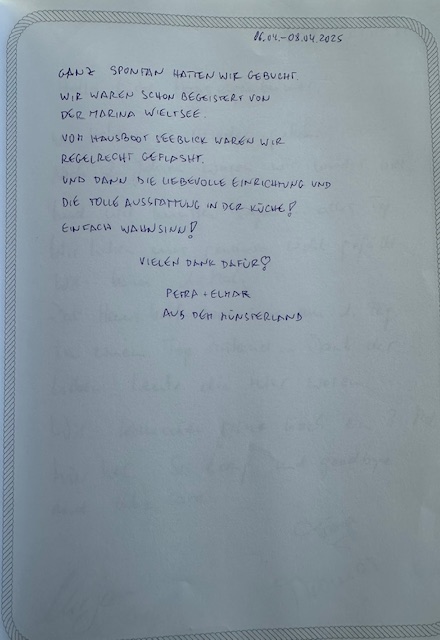 06.04.-08.04.2025
GANZ SPONTAN HATTEN WIR GEBUCHT.
WIR WAREN SCHON BEGEISTERT VON
DER MARINA WIELTSEE.
VOM HAUSBOOT SEEBLICK WAREN WIR
REGELRECHT GEFLASHT.
UND DANN DIE LIEBEVOLLE EINRICHTUNG UND
DIE TOLLE AUSSTATTUNG IN DER KÜCHE!
EINFACH WAHNSINN!
VIELEN DANK DAFÜR!
PETRA + ELMAR
AUS DEM MÜNSTERLAND